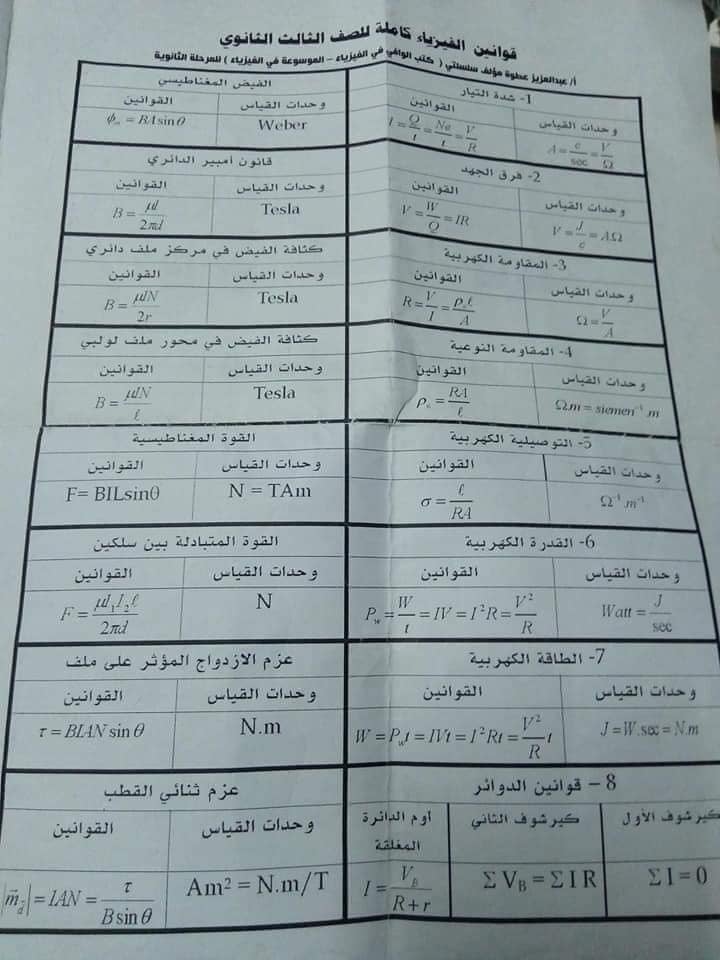 قوانين الفيزياء كاملة للصف الثالث الثانوي
أ/ عبدالعزيز عطوة مؤلف سلسلتي ( كتب الوافي في الفيزياء – الموسوعة في الفيزياء ) للمرحلة الثانوية
1- شدة التيار
وحدات القياس القوانين
A = c/sec = V/Ω I = Q/t = Ne/t = V/R
2- فرق الجهد
وحدات القياس القوانين
V = J/c = AΩ V = W/Q = IR
3- المقاومة الكهربية
وحدات القياس القوانين
Ω = V/A R = V/I = ρₑℓ/A
4- المقاومة النوعية
وحدات القياس القوانين
Ω.m = siemen⁻¹.m ρₑ = RA/ℓ
5- التوصيلية الكهربية
وحدات القياس القوانين
Ω⁻¹.m⁻¹ σ = ℓ/RA
6- القدرة الكهربية
وحدات القياس القوانين
Watt = J/sec P_w = W/t = IV = I²R = V²/R
7- الطاقة الكهربية
وحدات القياس القوانين
J = W.sec = N.m W = P_w t = IVt = I²Rt = V²/R t
8 – قوانين الدوائر
كيرشوف الأول كيرشوف الثاني أوم الدائرة المغلقة
Σ I = 0 Σ V_B = Σ I R I = V_B/R + r
الفيض المغناطيسي
وحدات القياس القوانين
Weber ϕₘ = BA sin θ
قانون أمبير الدائري
وحدات القياس القوانين
Tesla B = μI/2πd
كثافة الفيض في مركز ملف دائري
وحدات القياس القوانين
Tesla B = μIN/2r
كثافة الفيض في محور ملف لولبي
وحدات القياس القوانين
Tesla B = μIN/ℓ
القوة المغناطيسية
وحدات القياس القوانين
N = TAm F= BILsinθ
القوة المتبادلة بين سلكين
وحدات القياس القوانين
N F = μI₁I₂ℓ/2πd
عزم الازدواج المؤثر على ملف
وحدات القياس القوانين
N.m τ = BIAN sin θ
عزم ثنائي القطب
وحدات القياس القوانين
Am² = N.m/T |m⃗_d| = IAN = τ/B sin θ